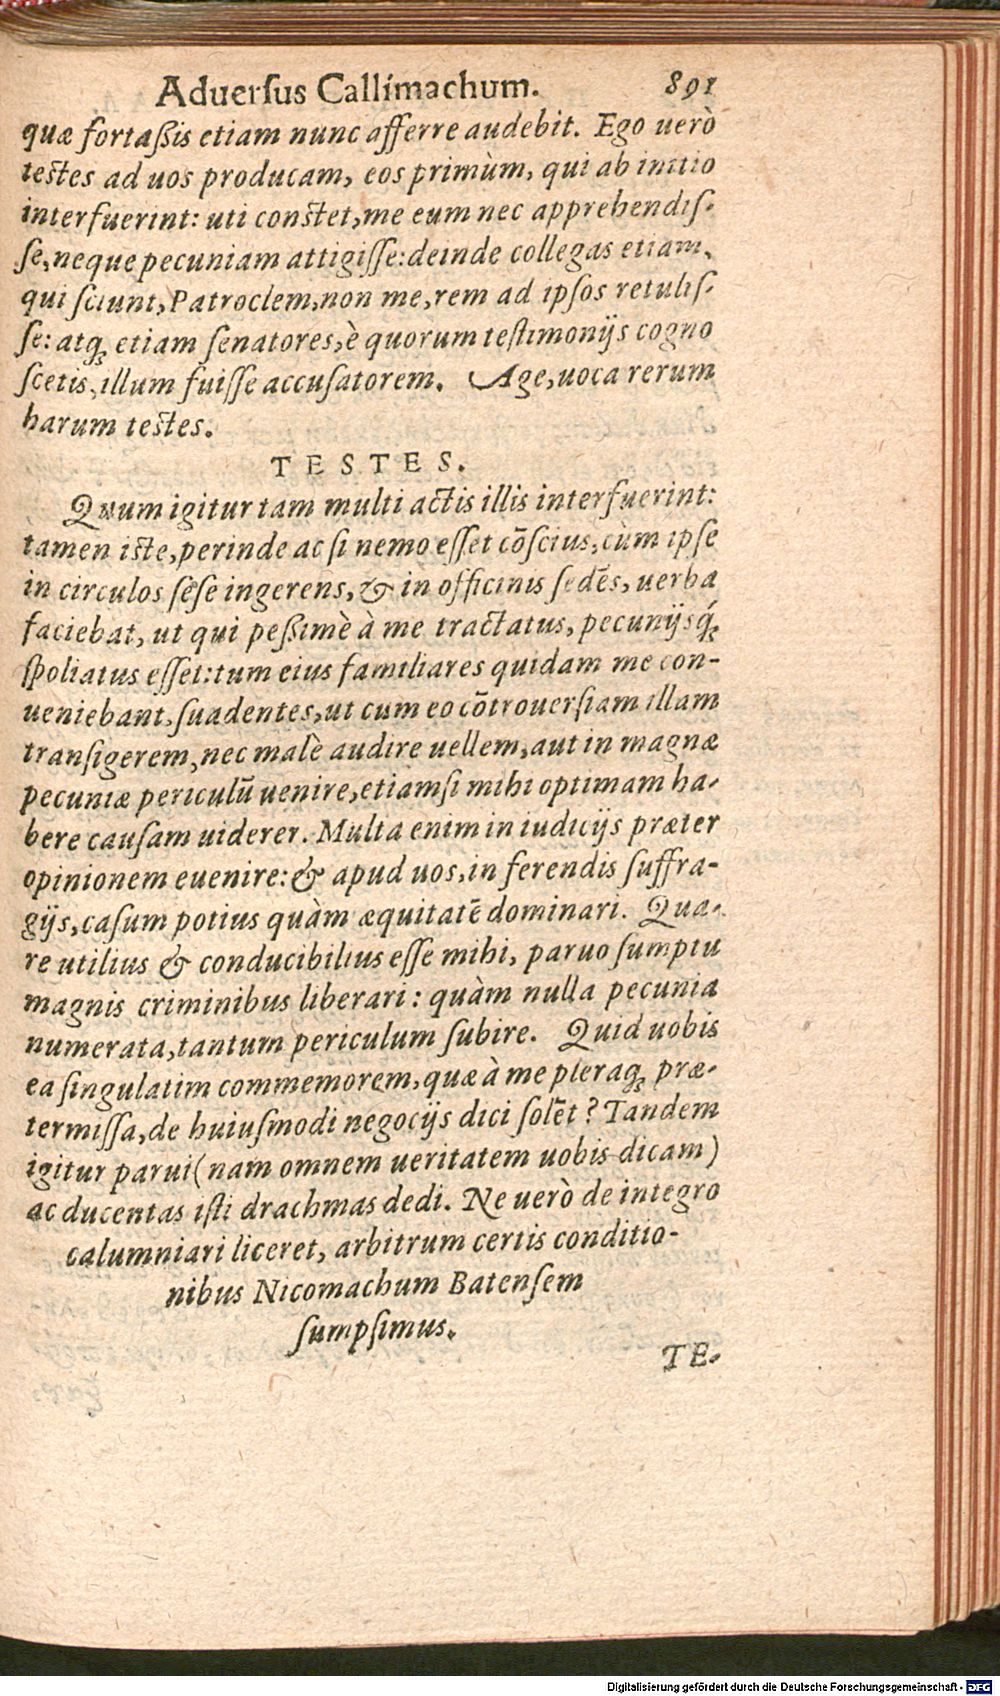 Aduerſus Callimachum. 891
quæ fortaßis etiam nunc afferre audebit. Ego uerò
teſtes ad uos producam, eos primùm, qui ab initio
interfuerint: uti conſtet, me eum nec apprehendiſ-
ſe, neque pecuniam attigiſſe: deinde collegas etiam,
qui ſciunt, Patroclem, non me, rem ad ipſos retuliſ-
ſe: atq́ꝫ etiam ſenatores, è quorum teſtimonijs cogno
ſcetis, illum fuiſſe accuſatorem. Age, uoca rerum
harum teſtes.
TESTES.
Quum igitur tam multi actis illis interfuerint:
tamen iſte, perinde ac ſi nemo eſſet cōſcius, cùm ipſe
in circulos ſeſe ingerens, & in officinis ſedēs, uerba
faciebat, ut qui peßimè à me tractatus, pecunijsq́ꝫ
ſpoliatus eſſet: tum eius familiares quidam me con-
ueniebant, ſuadentes, ut cum eo cōtrouerſiam illam
tranſigerem, nec malè audire uellem, aut in magnæ
pecuniæ periculū uenire, etiamſi mihi optimam ha-
bere cauſam uiderer. Multa enim in iudicijs præter
opinionem euenire: & apud uos, in ferendis ſuffra-
gijs, caſum potius quàm æquitatē dominari. Qua-
re utilius & conducibilius eſſe mihi, paruo ſumptu
magnis criminibus liberari: quàm nulla pecunia
numerata, tantum periculum ſubire. Quid uobis
ea ſingulatim commemorem, quæ à me pleraqꝫ præ-
termiſſa, de huiuſmodi negocijs dici ſolēt? Tandem
igitur parui (nam omnem ueritatem uobis dicam)
ac ducentas iſti drachmas dedi. Ne uerò de integro
calumniari liceret, arbitrum certis conditio-
nibus Nicomachum Batenſem
ſumpſimus.
TE-
Digitalisierung gefördert durch die Deutsche Forschungsgemeinschaft - DFG